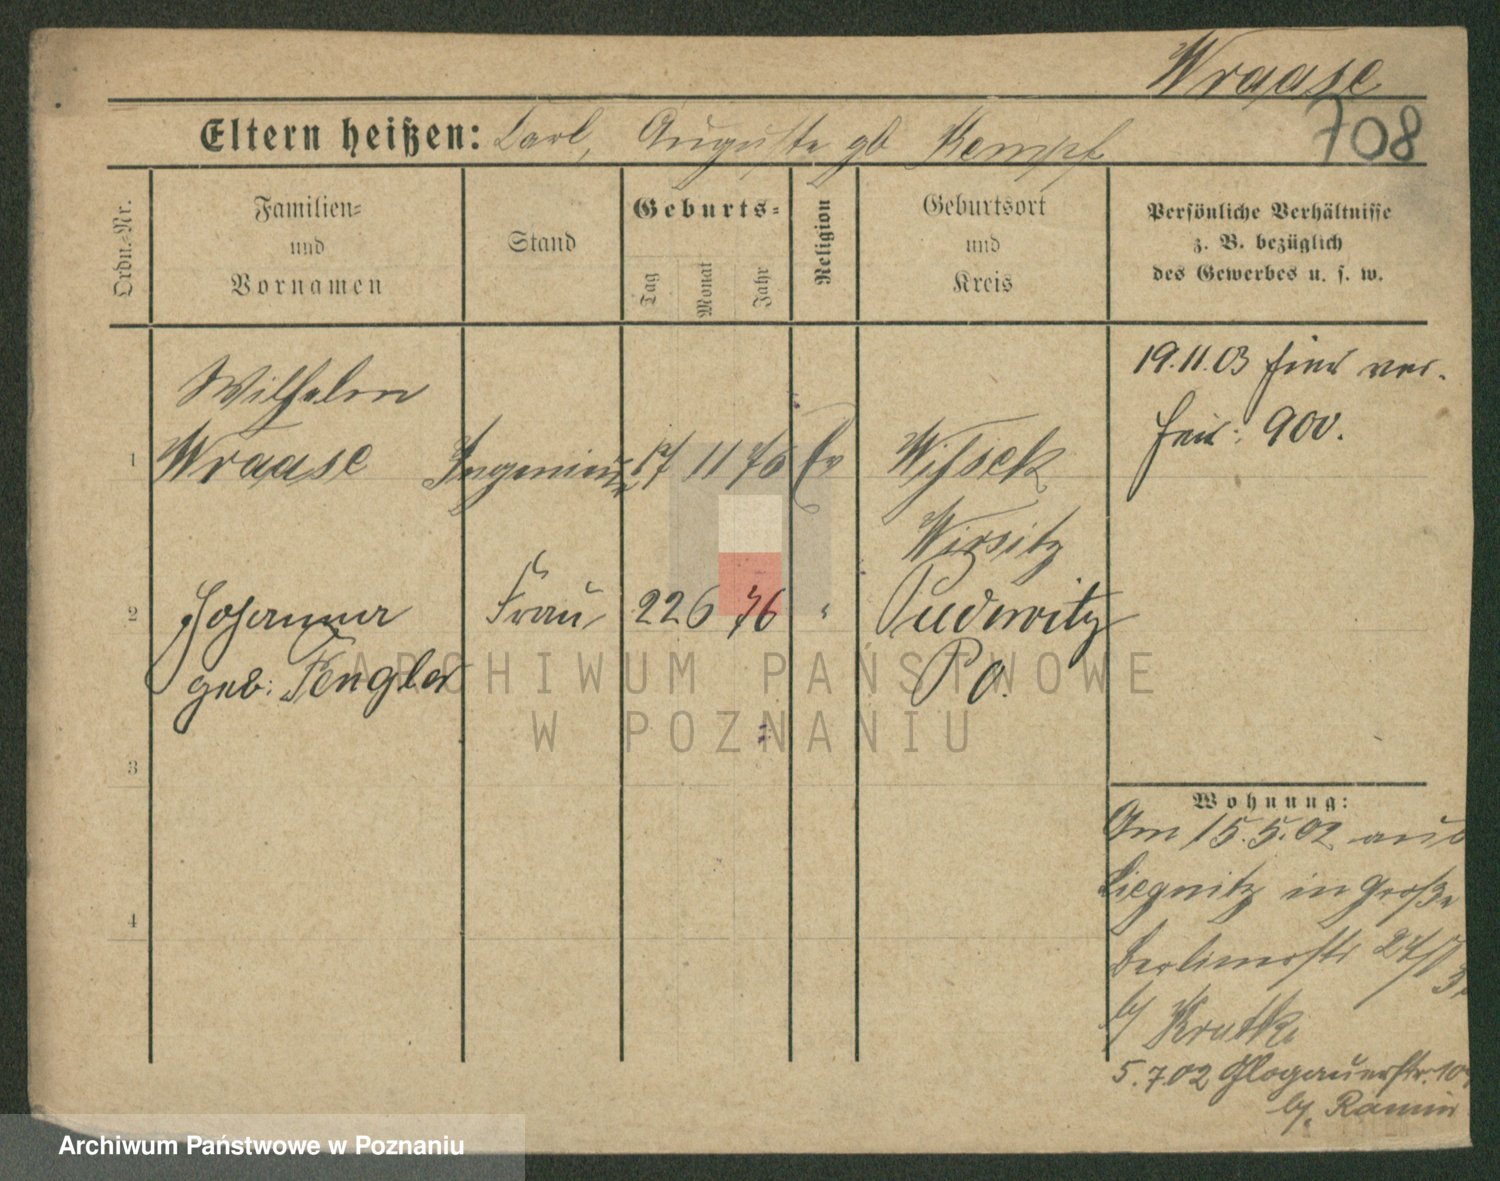 Wraase
708
Eltern heißen: Carl, Auguste gb Kempf
Ordn.-Nr.
Familien-
und
Vornamen
Stand
Geburts-
Tag
Monat
Jahr
Religion
Geburtsort
und
Kreis
Persönliche Verhältnisse
z. B. bezüglich
des Gewerbes u. s. w.
19.11.03
900.
Wilhelm
1 Wraase Ingenieur 17 11 76 Ev Wissek
Wirsitz
2 Johanna Frau 22 6 76 " Pudewitz
geb: Fengler Po.
3
4
Wohnung:
Am 15.5.02 aus
Liegnitz in Große
Berlinerstr
b/ Krutke
5.7.02 Glogauerstr.
b/. Ramin
ARCHIWUM PAŃSTWOWE
W POZNANIU
Archiwum Państwowe w Poznaniu